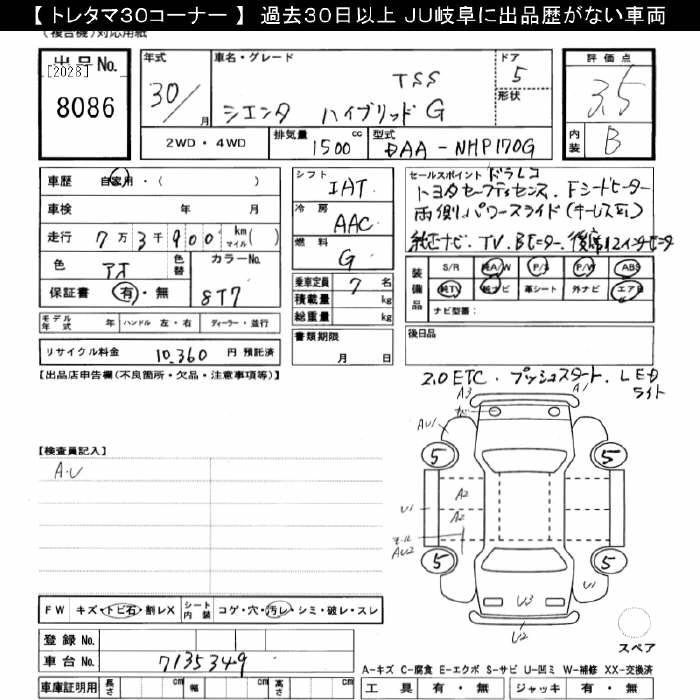 【 トレタマ30コーナー 】 過去30日以上 JU岐阜に出品歴がない車両
(複合機)対応用紙
出品No.
[2028]
8086
年式
30/ 月
車名・グレード
TSS
シエンタ ハイブリッド G
ドア
5
形状
評価点
3.5
内装 B
2WD・4WD
排気量 1500 cc
型式 DAA-NHP170G
車歴 自家用・( )
車検 年 月
走行 7万3千900 km マイル( )
色 アオ
色替
カラーNo. 8T7
保証書 有・無
シフト IAT
冷房 AAC
燃料 G
乗車定員 7 名
積載量 kg
総重量 kg
書類期限
月 日
セールスポイント ドラレコ
トヨタセーフティセンス. Fシートヒーター
両側パワースライド(キーレス
純正ナビ. TV. Bモニター. 後席12インチモニタ
装備品
S/R 純A/W P/S P/W ABS
純TV 純ナビ 革シート 外ナビ エアB
ナビ型番:
モデル年式 年 ハンドル 左・右 ディーラー・並行
リサイクル料金 10,360 円 預託済
後日品
【出品店申告欄(不良箇所・欠品・注意事項等)】
2.0ETC. プッシュスタート. LED
ライト
A3
A1
AU1
5
5
【検査員記入】
A.U
A2
U1
A2
AU2
5
5
U1
U3
U2
スペア
FW キズ・トビ石・割レX
シート内装 コゲ・穴・汚レ・シミ・破レ・スレ
登録No.
車台No. 7135349
車庫証明用 長さ cm 幅 cm 高さ cm
A-キズ C-腐食 E-エクボ S-サビ U-凹ミ W-補修 XX-交換済
工具 有・無 ジャッキ 有・無